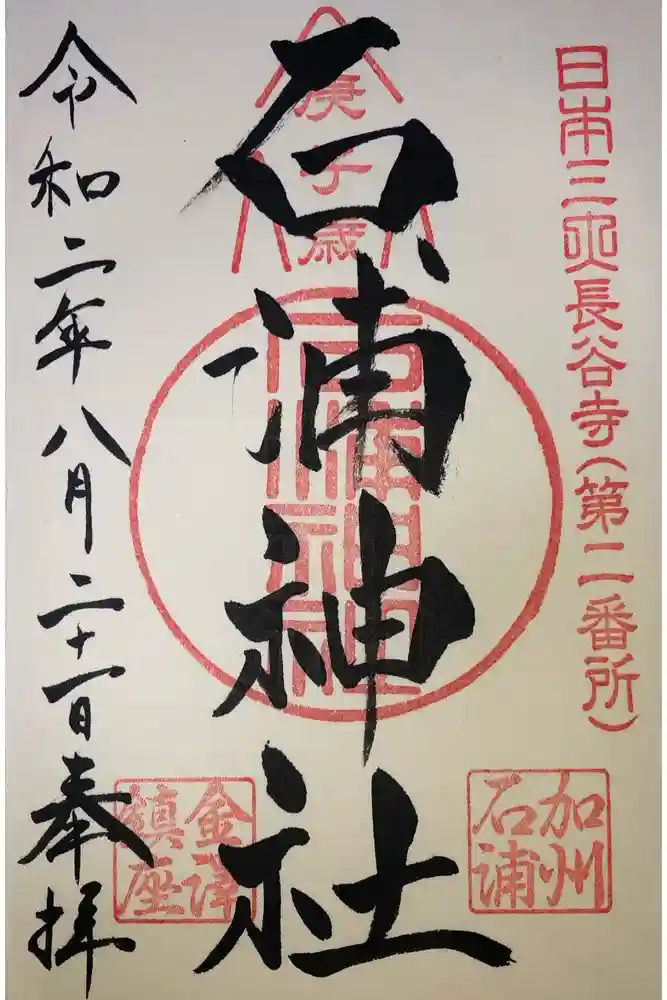 日本三大長谷寺（第二番所）
庚子歳
石浦神社
石浦
神社
加州
石浦
令和二年八月二十一日奉拝
金澤
鎮座